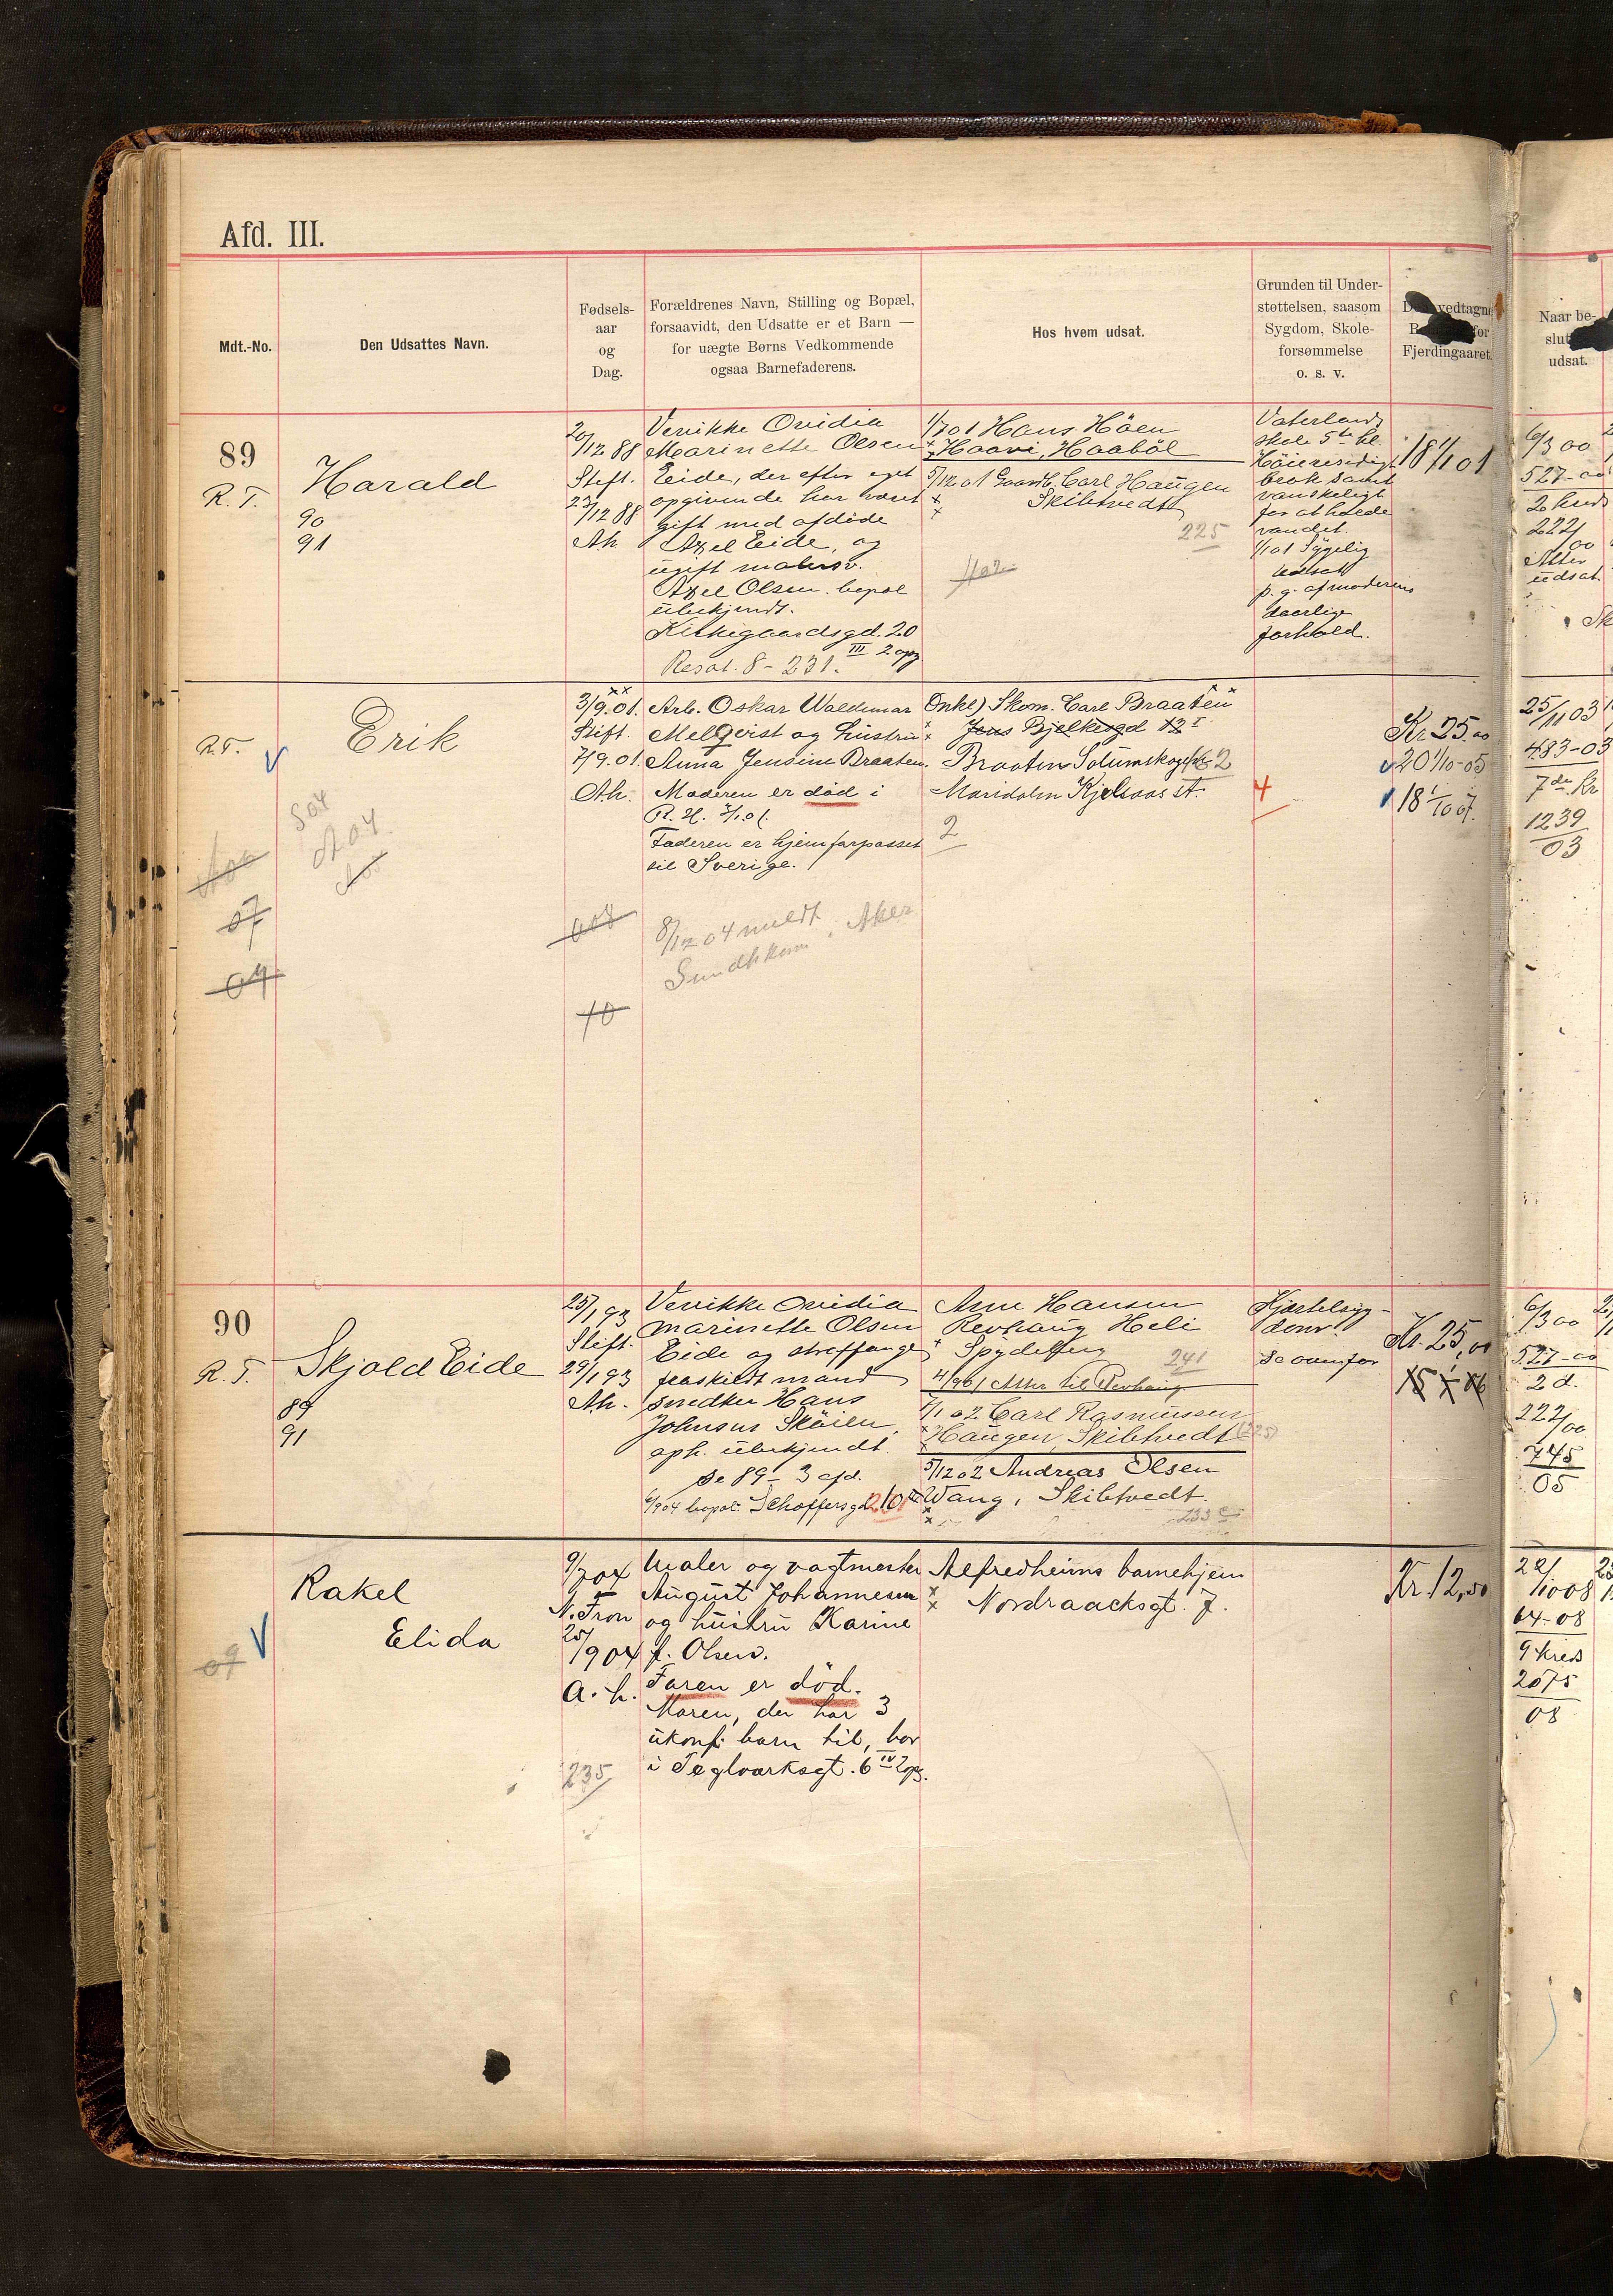 Afd. III.
Mdt.-No.
Den Udsattes Navn.
Fødsels-
aar
og
Dag.
Forældrenes Navn, Stilling og Bopæl,
forsaavidt, den Udsatte er et Barn —
for uægte Børns Vedkommende
ogsaa Barnefaderens.
Hos hvem udsat.
Grunden til Under-
støttelsen, saasom
Sygdom, Skole-
forsømmelse
o. s. v.
vedtagne
for
Fjerdingaaret.
Naar be-
slut
udsat.
89
R. T.
Harald
90
91
20/12 88
Stift.
23/12 88
Ah.
Verikke Ovidia
Marinette Olsen
Eide, der efter eget
opgivende har været
gift med afdøde
Axel Eide, og
ugift malersv.
Axel Olsen. bopæl
ubekjendt.
Kirkegaardsgd. 20
III 2 opg
Resol. 8 - 231.
1/7 01 Hans Höen
Haavi, Haaböl
5/12 01 Gaardb. Carl Haugen
Skibtvedt
225
Vaterlands
skole 5te kl.
samt
vanskeligt
for at holde
vandet.
1/1 01 Sygelig
udsat
p. g. af moderens
daarlige
forhold.
18 1/1 01
6/3 00
527-00
2 kreds
222/00
Atter
udsat.
R. T.
V
Erik
S 04
A 04
07
09
3/9.01.
Stift.
7/9.01.
Ah.
Arb. Oskar Waldemar
Melqvist og hustru
Anna Jensine Braaten.
Moderen er död i
R. H.
Faderen er hjemforpasset
til Sverige.
8/12 04 meldt Aker
Sundhkom
10
Onkel) Skom. Carl Braaten
Jens Bjelkesgd 12 I
Braaten Solumskogen 2
Maridalen Kjelsaas st.
2
4
Kr. 25.00
20 1/10-05
18 1/10 07.
25/11 03
483-03
7de Kr
1239
03
90
R. T.
Skjold Eide
89
91
25/1 93
Stift.
29/1 93
Ah.
Verikke Ovidia
Marinette Olsen
Eide og straffange
fraskildt mand
snedker Hans
Johnsen Sköien,
oph. ubekjendt.
Se 89 - 3 afd.
6/9 04 bopæl: Schoffersgd.
Arne Hansen
Revhaug Heli
Spydeberg
241
4/9 01 Atter til Revhaug
1/1 02 Carl Rasmussen
Haugen, Skibtvedt
5/12 02 Andreas Olsen
Wang, Skibtvedt.
233
Hjertesyg-
dom.
Se ovenfor
Kr. 25,00
6/3 00
527-00
2 d.
222/00
745
05
V
09
Rakel
Elida
9/7 04
N. Fron
25/9 04
A. h.
235
Maler og vagtmester
August Johannesen
og hustru Karine
f. Olsen.
Faren er död.
Moren, der har 3
ukonf. barn til, bor
i Teglverksgt. 6 IV 2 opg.
Alfredheims barnehjem
Nordraacksgt. 7.
Kr. 12,50
22/10 08
64-08
9 kreds
2075
08